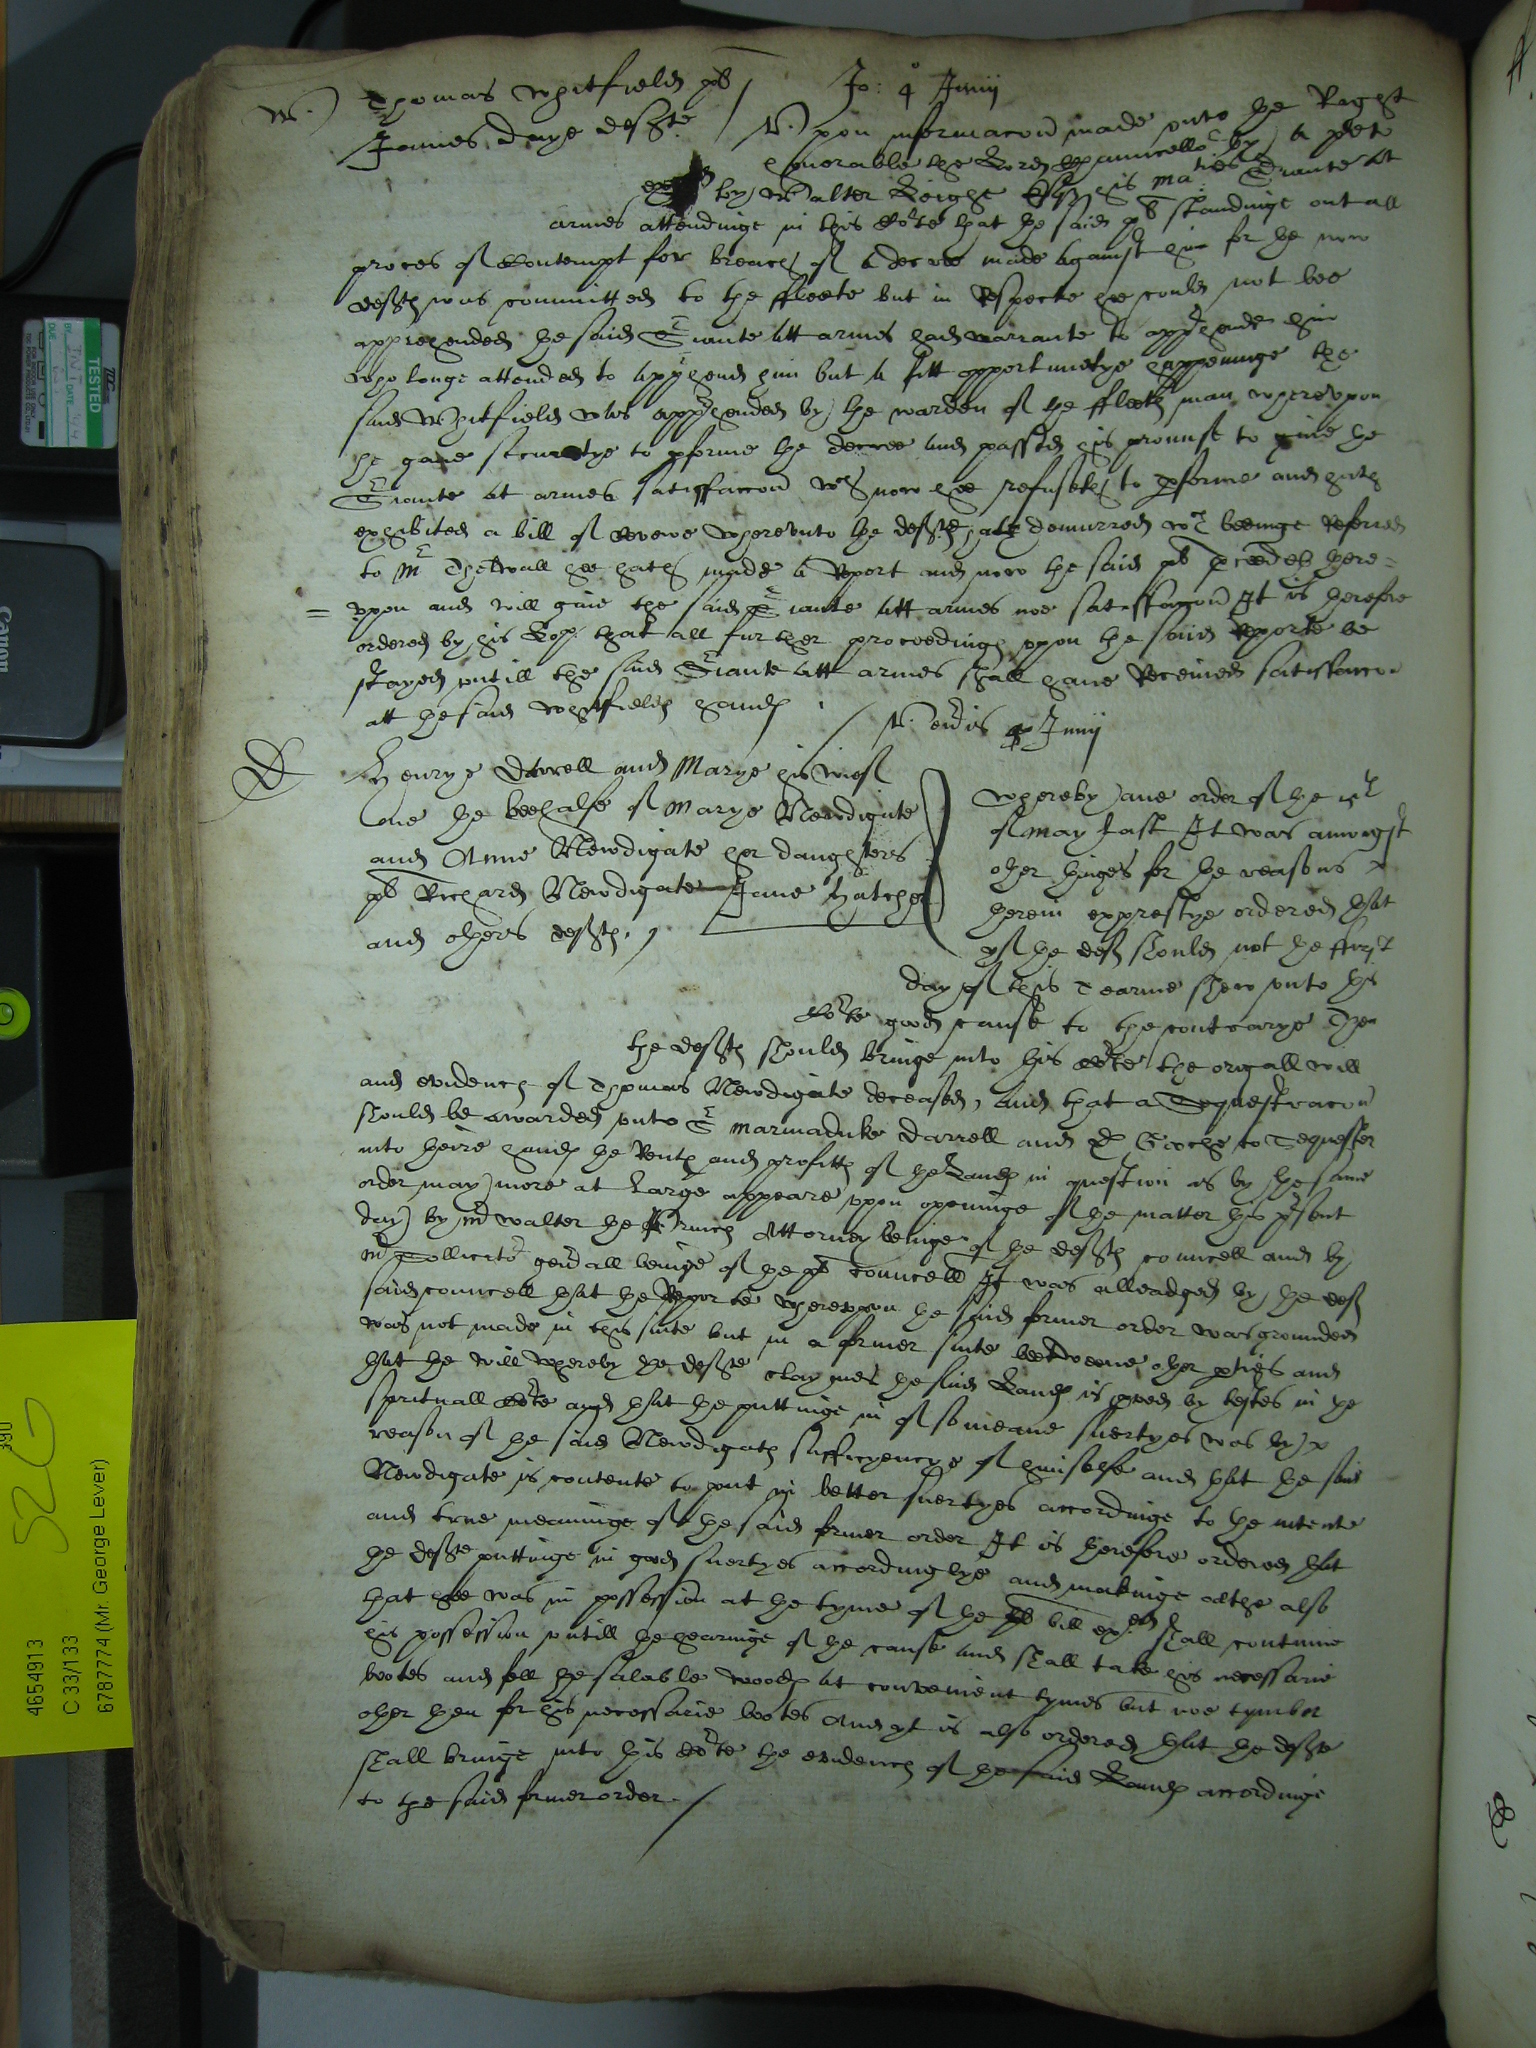 W.) Thomas Whitfield pl / Jo: 4 Junij
James Daye defte / Vpon informacon made vnto the Right
honorable the Lord Chauncellor by a peticon
by Walter Leighe his maties Sriante at
armes attendinge in this Corte that the said pl standinge out all
proces of Contempt for breach of a decree made against him for the now
defth was committed to the ffleete but in Respecte hee could not bee
apprehended the said Sriante att armes had warrante to apprhende him
who longe attended to apprhend him but a fitt opportunetye happeninge the
said Whitfield was apprhended by the warden of the ffleets man wherevpon
he gaue securetye to pforme the decree and passed his promise to giue the
Sriante at armes satisfaccon wch now hee refuseth to pforme and hath
exhibited a bill of Revewe wherevnto the defte hath demurred wch beeinge Referred
to Mr Thelwall hee hath made a Report and now the said pl pceedeth there=
= vppon and will giue the said Sriante att armes noe satisfaccon It is therefore
ordered by his Lop. that all further proceedings vpon the said Reporte be
stayed vntill the said Sriante att armes shall haue Receiued satisfaccon
att the said Whitfields hands /
Venrdis 4 Junij
D Henrye Darrell and Marye his wief
one the beehalfe of Marye Newdigate
and Anne Newdigate her daughters
pl Richard Newdigate Jane Hatcher
and others defth. /
Whereby one order of the
of May last It was amongst
other thinges for the reasons
therein expresslye ordered that
yf the deft should not the ffirst
day of this Tearme shew vnto this
Corte good cause to the contrarye Then
the defth should bringe into this Corte the origall will
and evidences of Thomas Newdigate deceased, and that a Sequestracon
should be awarded vnto Sr Marmaduke Darrell and Gooche to Sequester
into theire hands the Rents and profitts of the Lands in question as by the same
order may more at Large appeare vpon openinge of the matter this prsent
day by Mr Walter the ffrench Attorney beinge of the defth councell and by
Mr Sollicitor genrall beinge of the pl Councell It was alleadged by the deft
said councell that the Reporte wherevpon the said former order was grounded
was not made in this suite but in a former suite beetweene other pties and
that the will whereby the defte claymes the said Lands is pved by testes in the
spirituall Corte and that the puttinge in of so meane suertyes was by
reason of the said Newdigats sufficyencye of himselfe and that the said
Newdigate is contente to put in better suertyes accordinge to the intente
and true meaninge of the said former order It is therefore ordered that
the defte puttinge in good suertyes accordinglye and makinge oathe also
that hee was in possession at the tyme of the pl bill exhited shall continue
his possession vntill the hearinge of the cause and shall take his necessarie
bootes and fell the salable woods at convenient tymes but noe tymber
other then for his necessarie bootes And yt is also ordered that the defte
shall bringe into this Corte the evidences of the said Lands accordinge
to the said former order. /
TESTED
DATE
Canon
390
526
4654913
C 33/133
6787774 (Mr. George Lever)